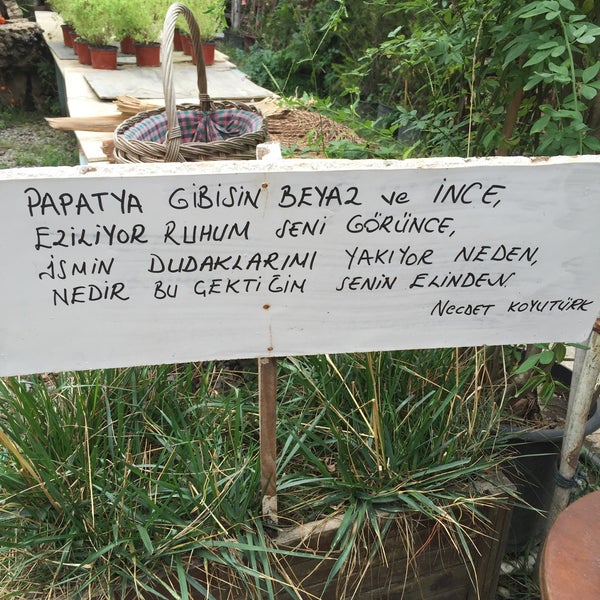 PAPATYA GİBİSİN BEYAZ ve İNCE,
EZİLİYOR RUHUM SENİ GÖRÜNCE,
İSMİN DUDAKLARIMI YAKIYOR NEDEN,
NEDİR BU ÇEKTİĞİM SENİN ELİNDEN
NECDET KOYUTÜRK